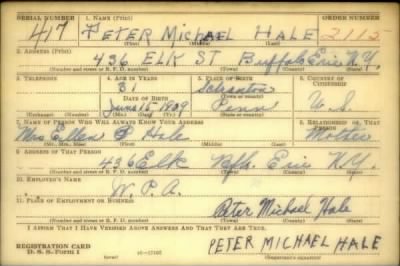 SERIAL NUMBER 1. NAME (Print) ORDER NUMBER
417 PETER MICHAEL HALE 2115
(First) (Middle) (Last)
2. ADDRESS (Print)
436 ELK ST Buffalo Erie N.Y.
(Number and street or R. F. D. number) (Town) (County) (State)
3. TELEPHONE 4. AGE IN YEARS 5. PLACE OF BIRTH 6. COUNTRY OF CITIZENSHIP
31 Scranton
DATE OF BIRTH (Town or county)
June 15 1909 Penn U.S.
(Exchange) (Number) (Mo.) (Day) (Yr.) (State or country)
7. NAME OF PERSON WHO WILL ALWAYS KNOW YOUR ADDRESS 8. RELATIONSHIP OF THAT PERSON
Mrs Ellen P Hale Mother
(Mr., Mrs., Miss) (First) (Middle) (Last)
9. ADDRESS OF THAT PERSON
436 Elk Bflo. Erie N.Y.
(Number and street or R. F. D. number) (Town) (County) (State)
10. EMPLOYER'S NAME
W.P.A.
11. PLACE OF EMPLOYMENT OR BUSINESS
Peter Michael Hale
(Number and street or R. F. D. number) (Town) (County) (State)
I AFFIRM THAT I HAVE VERIFIED ABOVE ANSWERS AND THAT THEY ARE TRUE.
REGISTRATION CARD PETER MICHAEL HALE
D. S. S. Form 1 (over) (Registrant's signature)